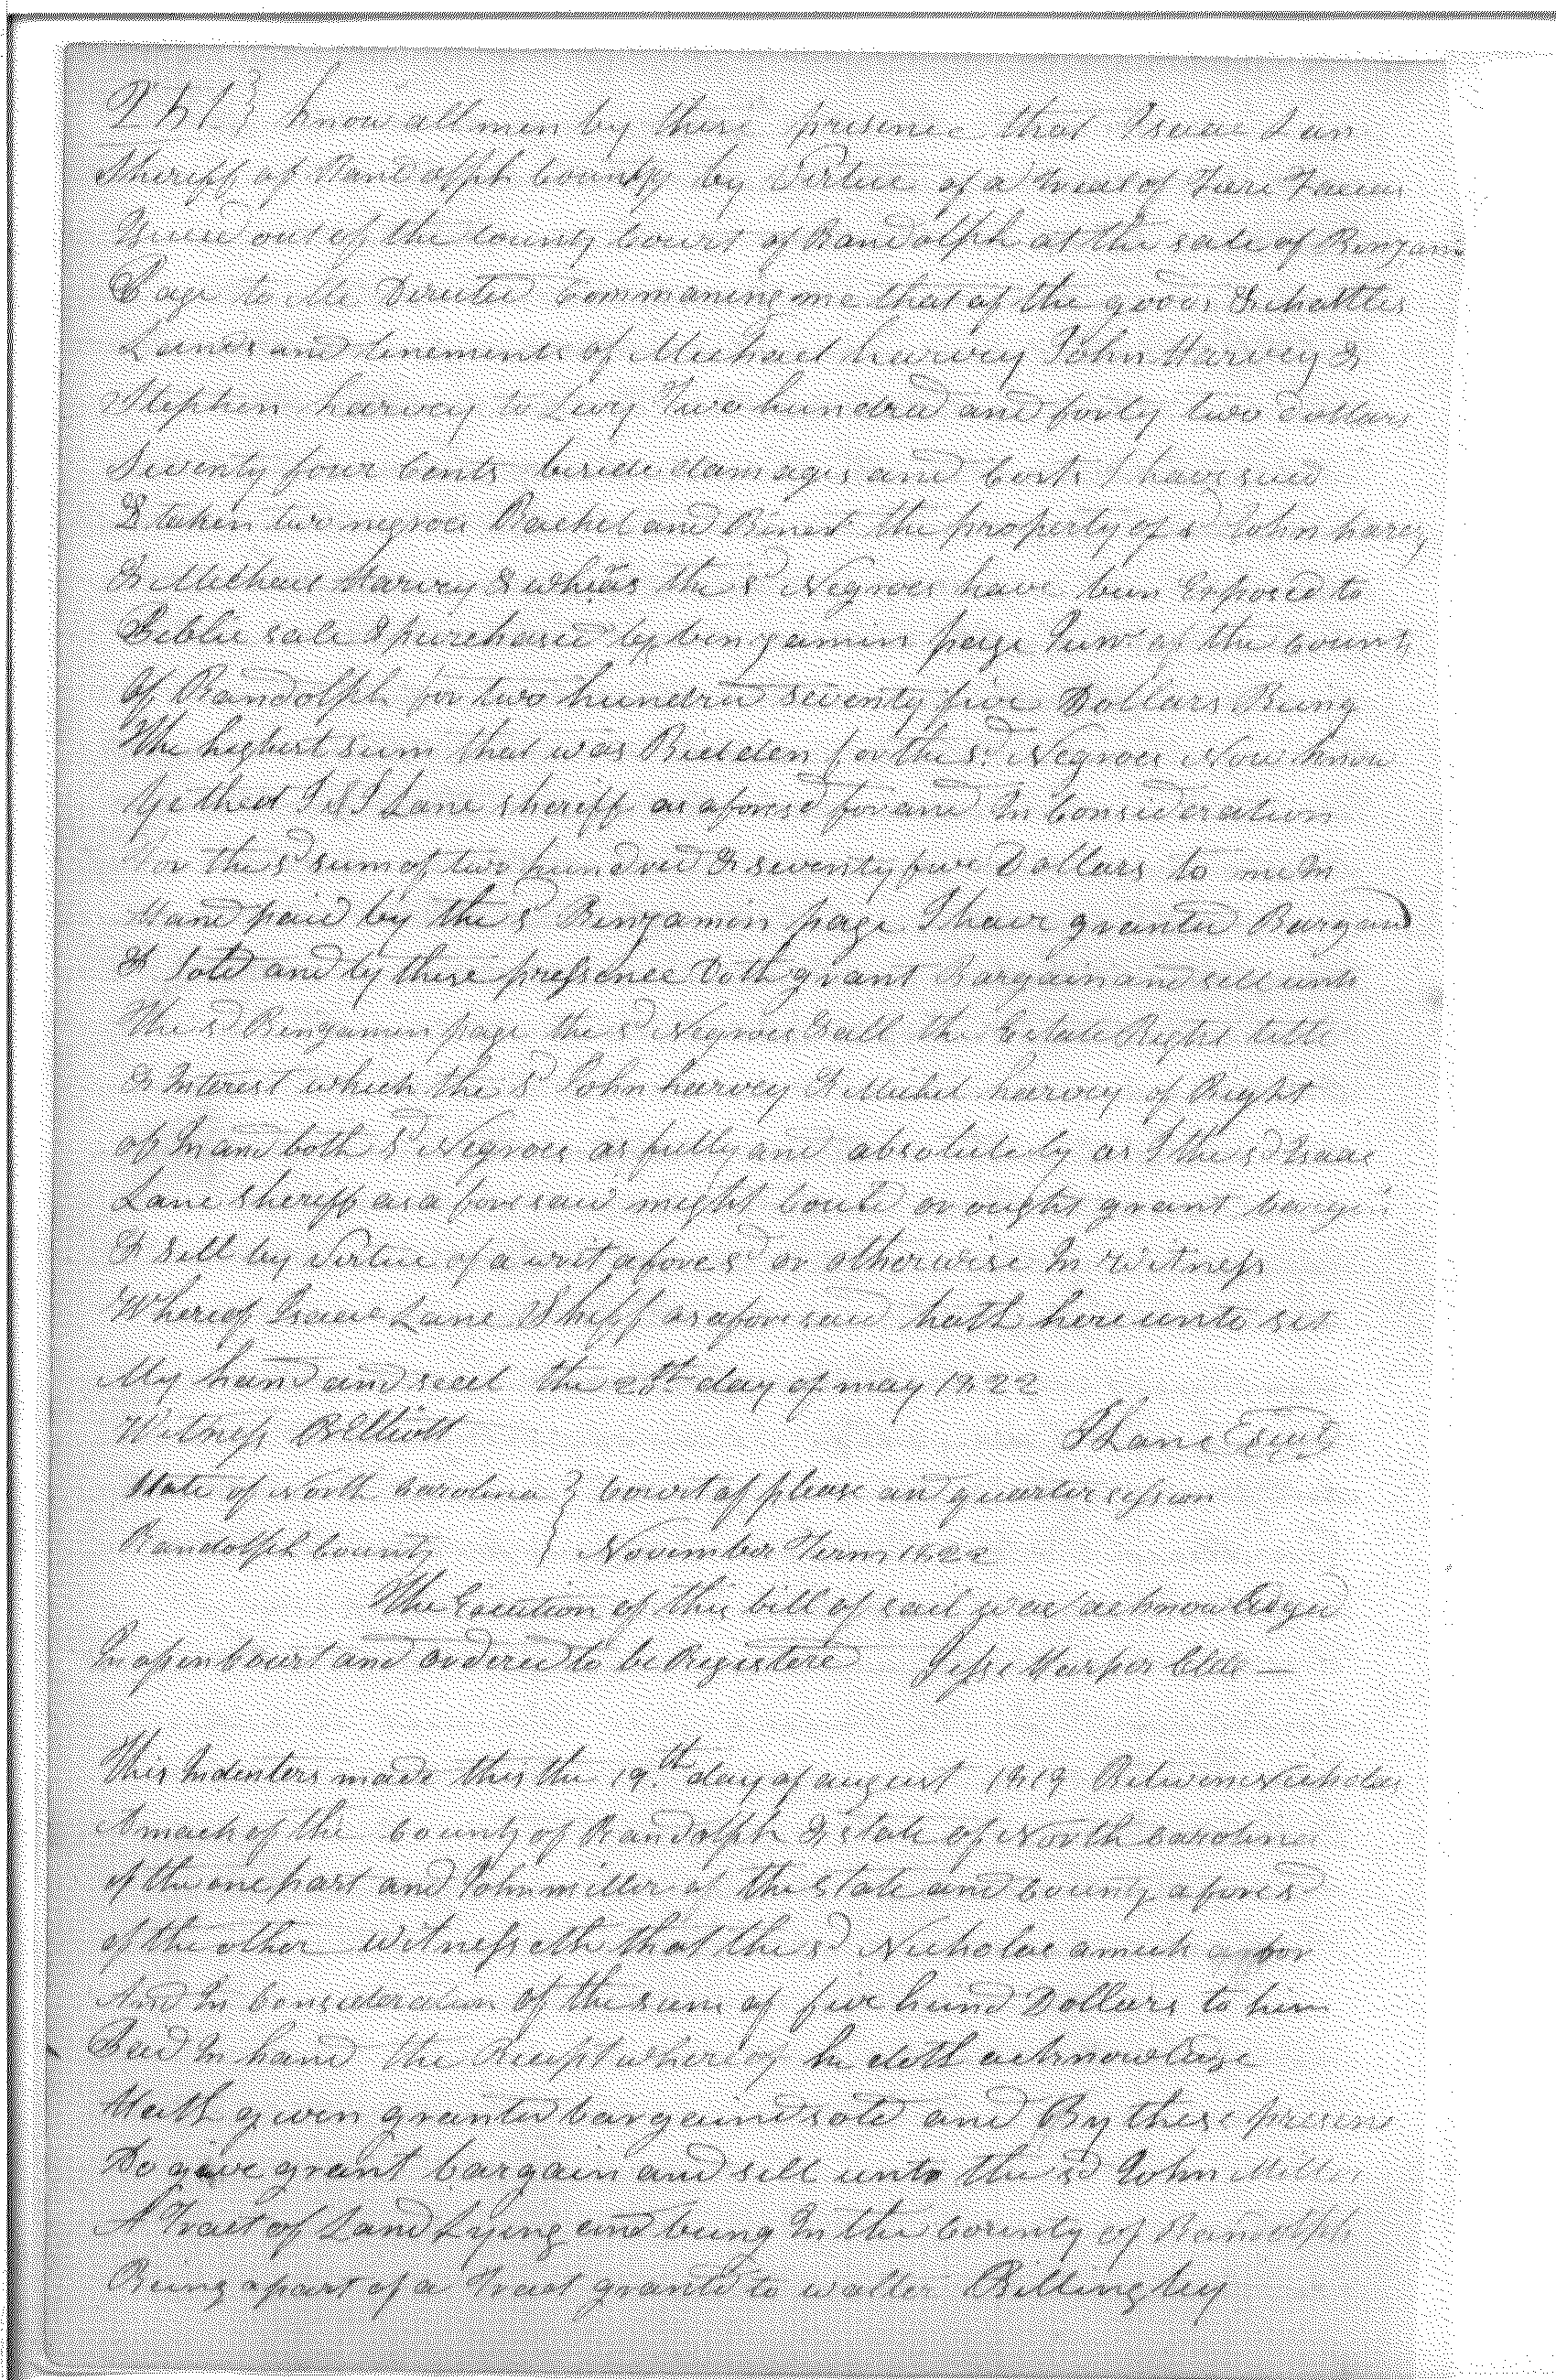 know all men by these presence that Isaac Lan
Sheriff of Randolph County by Virtue of a writ of Fieri Facias
Issued out of the County Court of Randolph at the sale of Benjamin
Page to Me Directed Commaning me that of the goods & chattles
Lands and tenements of Michael harvey John Harvey &
Stephen harvey to Levy Two hundred and forty two dollars
Seventy four Cents beside damages and Costs I have
& taken two negroes Rachel and the property of sd John harvey
& Michael Harvey & whereas the sd Negroes have been Exposed to
Publick sale & purchased by benjamin page Junr of the county
of Randolph for two hundred seventy five Dollars Being
The highest sum that was Bidden for the sd Negroes Now know
Ye that I Lane sheriff as aforesd for and In Consideration
For the sd sum of two hundred & seventy five Dollars to me In
Hand paid by the sd Benjamin page I have granted Bargand
& Sold and by these presence Doth grant Bargain and sell unto
The sd Benjamin page the sd Negroes & all the Estate Right title
& Interest which the sd John harvey & Michel harvey of Right
of In and both sd Negroes as fully and absolutely as I the sd Isaac
Lane sheriff as a fore said might Could or ought grant bargin
& Sell by Virtue of a writ aforesd or otherwise In witness
Whereof Isaac Lane Shiff as afore said hath here unto set
My hand and seal the day of may 1822
Witness B Elliott I Lane Seal
State of North Carolina } Court of pleas and quarter session
Randolph County } November Term 1822
The Execution of this bill of sail was acknowledged
In open Court and ordered to be Registere Jesse Harper Clk
This Indenters made this the 19th day of august 1819 Between Nicholas
Amack of the County of Randolph & State of North Carolina
of the one part and John miller of the State and County aforesd
of the other witnesseth that the sd Nicholas amick for
And In Consideration of the sum of five hund Dollars to him
In hand the Receipt whereof he doth acknowledge
Hath given granted bargained sold and By these presene
Do give grant bargain and sell unto the sd John Miller
A Tract of Land Lying and being In the County of Randolph
Being a part of a Tract granted to walter Billingsley